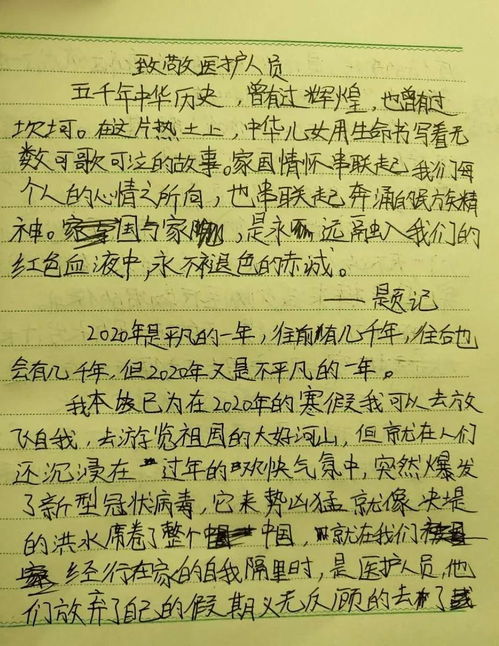 致敬医护人员
五千年中华历史，曾有过辉煌，也曾有过
坎坷。在这片热土上，中华儿女用生命书写着无
数可歌可泣的故事。家国情怀串联起我们每
个人的心情之所向，也串联起奔涌的民族精
神。国与家，是永远融入我们的
红色血液中，永不褪色的赤诚。
——题记
2020年是平凡的一年，往前有几千年，往后也
会有几千年，但2020年又是不平凡的一年。
我本以为在2020年的寒假我可以去放
飞自我，去游览祖国的大好河山，但就在人们
还沉浸在过年的欢快气氛中，突然爆发
了新型冠状病毒，它来势凶猛就像决堤
的洪水席卷了整个中国，就在我们
经行在家的自我隔离时，是医护人员，他
们放弃了自己的假期义无反顾的去了